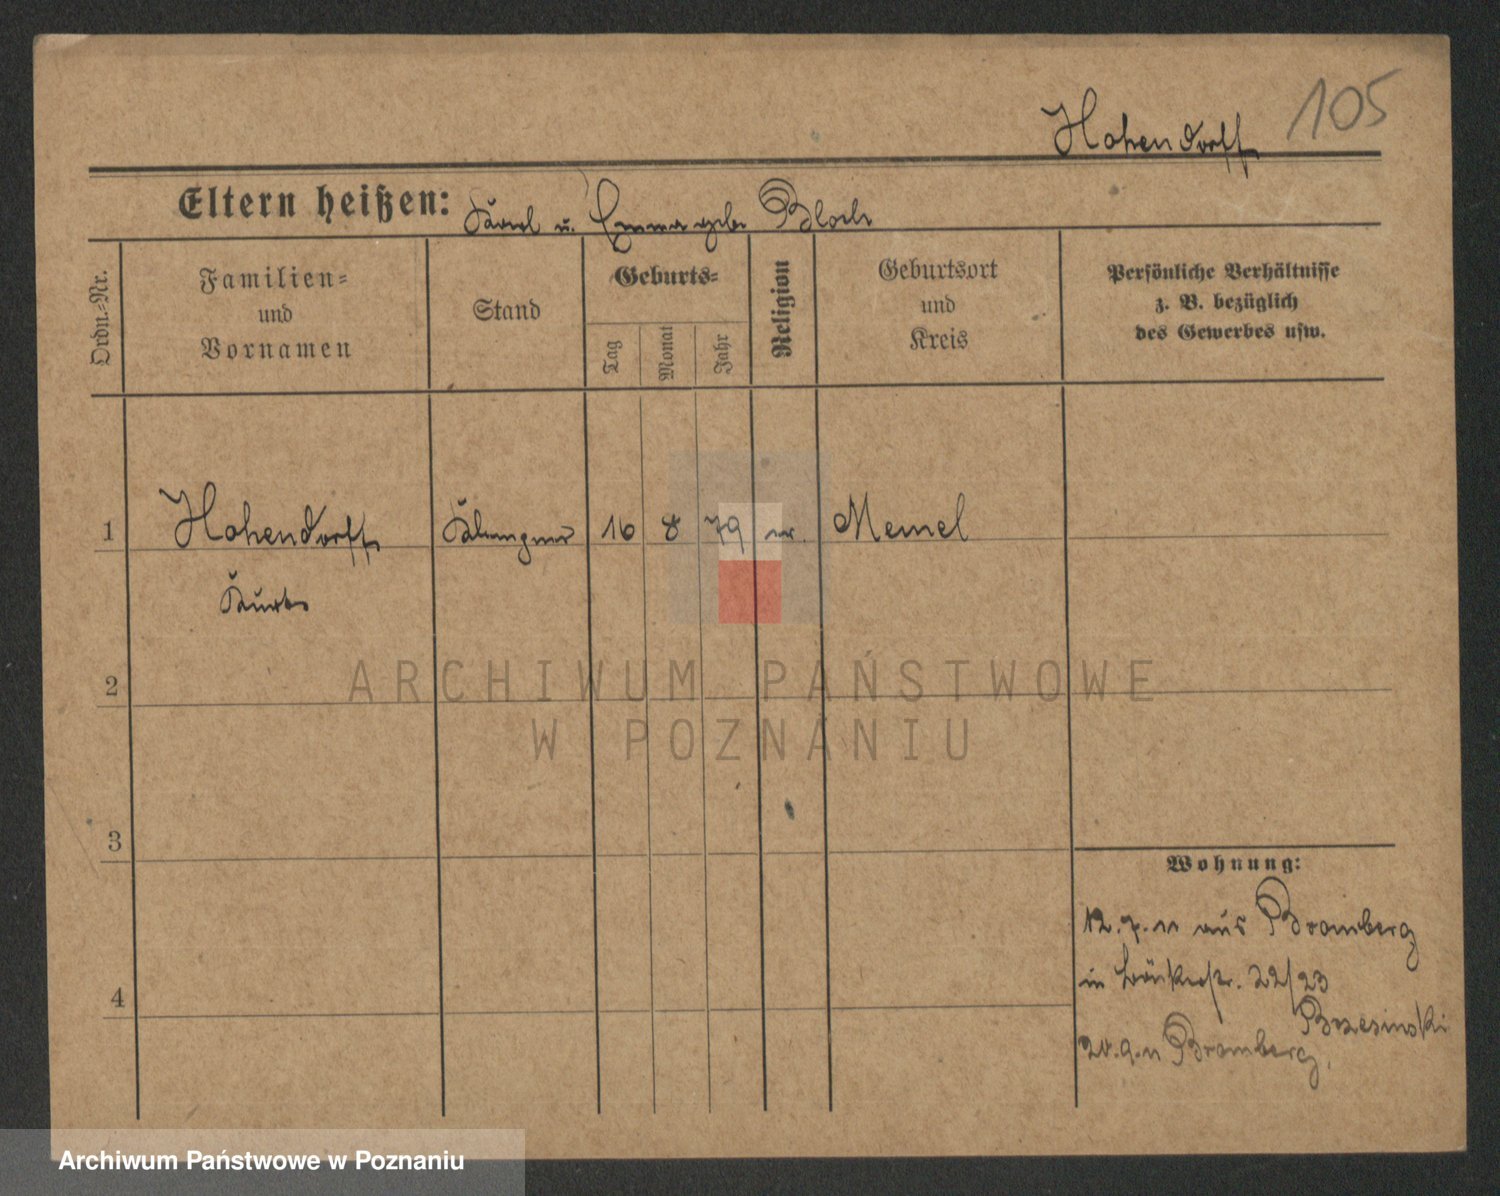 105
Hohendorff
Eltern heißen: Karl u. Emma geb. Bloch
Ordn.-Nr.
Familien-
und
Vornamen
Stand
Geburts-
Tag
Monat
Jahr
Religion
Geburtsort
und
Kreis
Persönliche Verhältnisse
z. B. bezüglich
des Gewerbes usw.
1 Hohendorff Klempner 16 8 79 Memel
Kurt
2
ARCHIWUM PAŃSTWOWE
W POZNANIU
3
Wohnung:
12.7.11 aus Bromberg
in 22/23
4
Brzesinski
20.9.11 Bromberg.
Archiwum Państwowe w Poznaniu